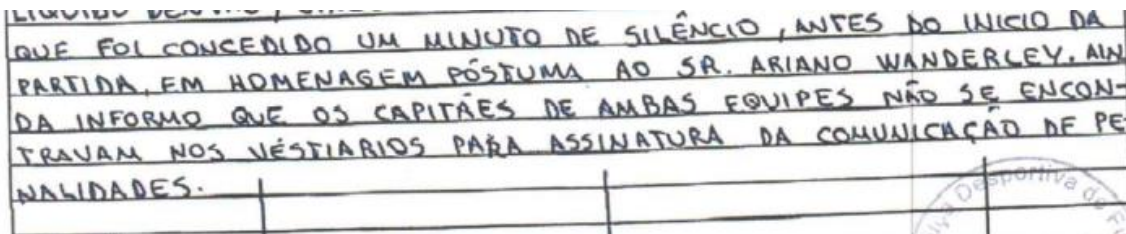 LIQUIDO
QUE FOI CONCEDIDO UM MINUTO DE SILÊNCIO, ANTES DO INICIO DA
PARTIDA, EM HOMENAGEM PÓSTUMA AO SR. ARIANO WANDERLEY. AIN
DA INFORMO QUE OS CAPITÃES DE AMBAS EQUIPES NÃO SE ENCON-
TRAVAM NOS VÉSTIARIOS PARA ASSINATURA DA COMUNICAÇÃO DE PE-
NALIDADES.
Desportiva de